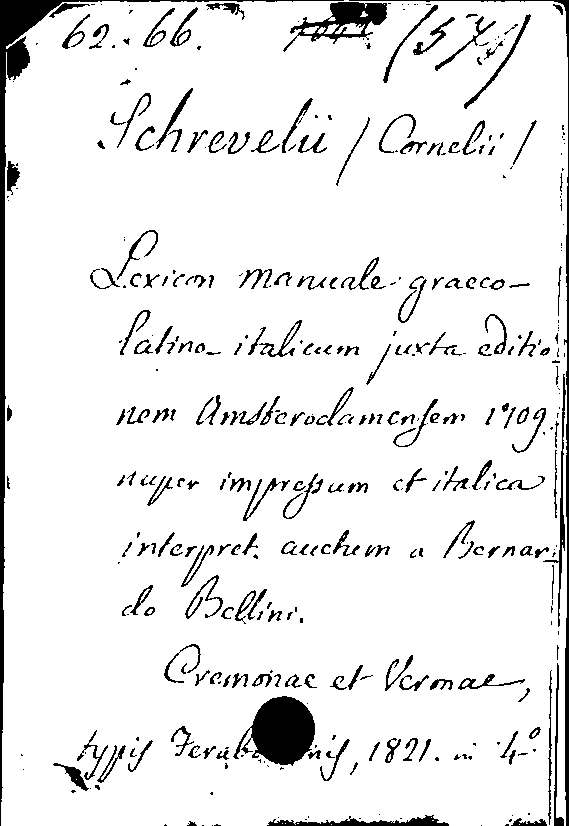 62.:66. (57.)
Schrevelii / Cornelii /
Lexicon manuale graeco-
latino-italicum juxta editio
nem Amsterodamensem 1709
nuper impressum et italica
interpret. auctum a Bernar
do Bellini.
Cremonae et Veronae,
typis 1821. in 4º